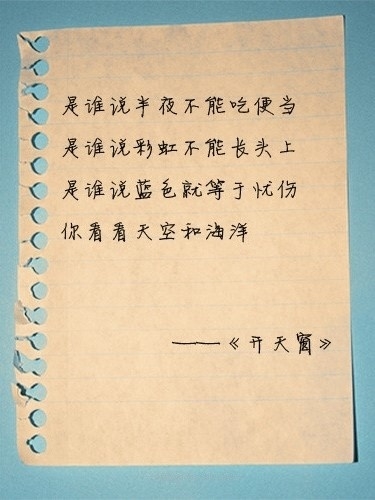 是谁说半夜不能吃便当
是谁说彩虹不能长头上
是谁说蓝色就等于忧伤
你看看天空和海洋
——《开天窗》